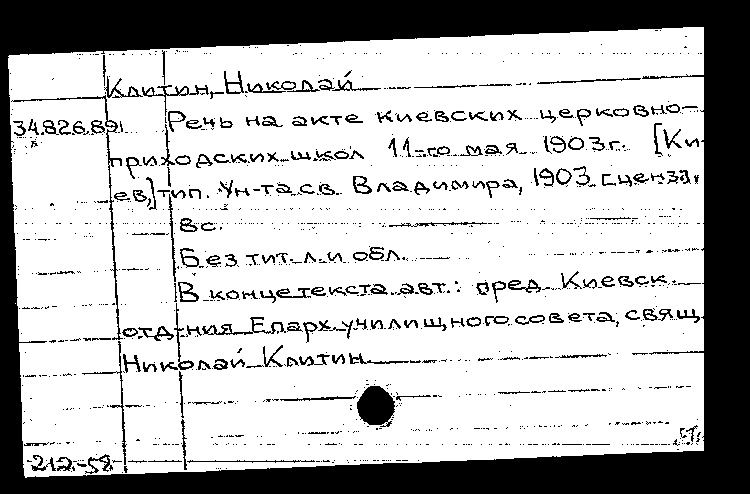 Клитин, Николай
34.826.891 Речь на акте киевских церковно-
приходских школ 11-го мая 1903г. [Ки-
ев,] тип. Ун-та св. Владимира, 1903 [ценз.],
8с.
Без тит. л. и обл.
В конце текста авт.: пред. Киевск.
отд-ния Епарх. училищного совета, свящ.
Николай Клитин.
212-58